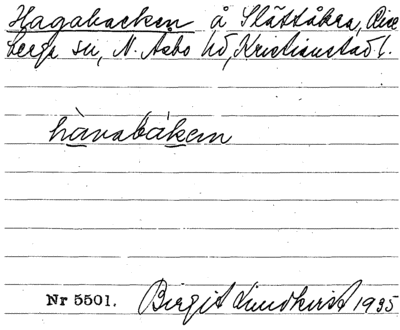 Hagabacken å Slättåkra, Rise
berga sn, N. Åsbo hd, Kristianstad l.
hàvabákem
Nr 5501. Birgit Lindkvist 1935